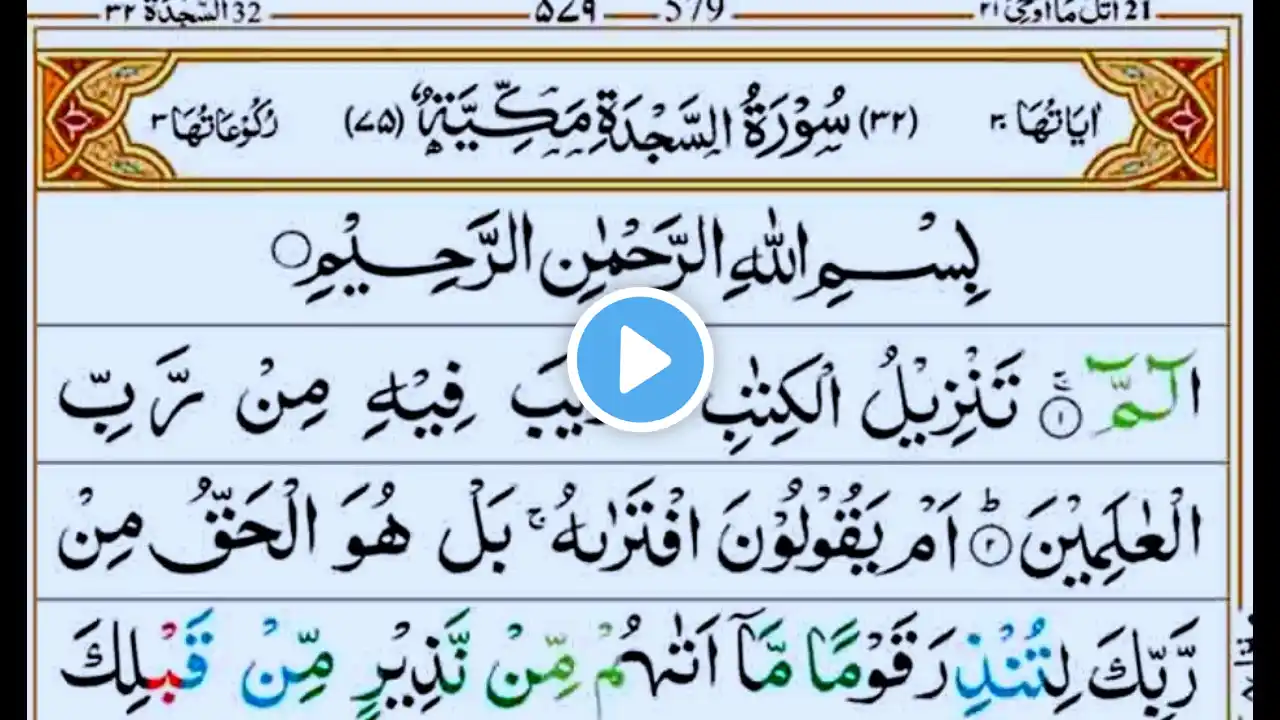 اتل ما اوحی ٢١ 21 579 ۵۷۹ السجدة ٣٢ 32
اٰیَاتُهَا ٣٠ (٣٢) سُوْرَةُ السَّجْدَةِ مَكِّیَّةٌ (٧٥) رُكُوْعَاتُهَا ٣
بِسْمِ اللّٰهِ الرَّحْمٰنِ الرَّحِیْمِ
الٓمّٓ ١ۚ تَنْزِیْلُ الْكِتٰبِ یْبَ فِیْهِ مِنْ رَّبِّ
الْعٰلَمِیْنَ ٢ؕ اَمْ یَقُوْلُوْنَ افْتَرٰىهُ ۚ بَلْ هُوَ الْحَقُّ مِنْ
رَّبِّكَ لِتُنْذِرَ قَوْمًا مَّاۤ اَتٰىهُمْ مِّنْ نَّذِیْرٍ مِّنْ قَبْلِكَ